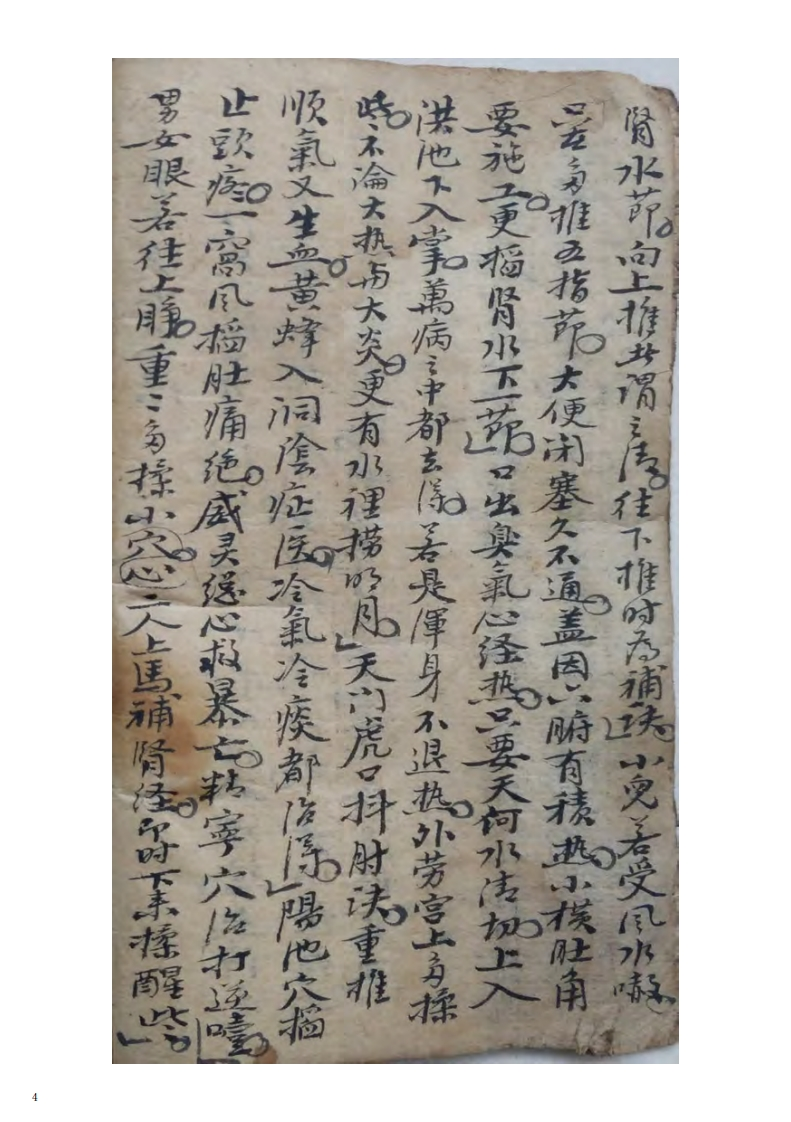 腎水節。向上推此謂之清。往下推時為補訣。小兒若受風水嗽
只在多推五指節。大便闭塞久不通。盖因六腑有積热。小横肚角
要施工。更掐腎水下一節。口出臭氣心経热。只要天河水清切。上入
洪池下入掌。萬病之中都去得。若是渾身不退热。外劳宫上多揉
些。不論大热与大炎。更有水裡捞明月。天门虎口抖肘決。重推
順氣又生血。黄蜂入洞陰症医。冷氣冷痰都治得。陽池穴掐
止頭疼。一窩风掐肚痛绝。威灵緫心救暴亡。精寧穴治打逆噎。
男女眼若往上睁。重〻多揉小穴心。二人上馬補腎経。即时下来揉醒些。
4